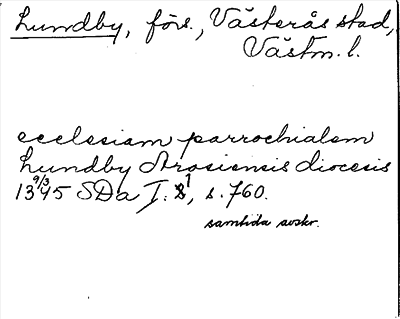 Lundby, förs., Västerås stad,
Västm. l.
ecclesiam parrochialem
Lundby Arosiensis diocesis
9/3
1345 SDa I: 1, s. 760.
samtida avskr.